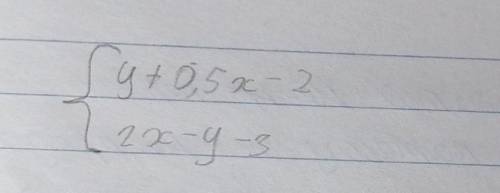 y + 0,5x - 2
2x - y - 3